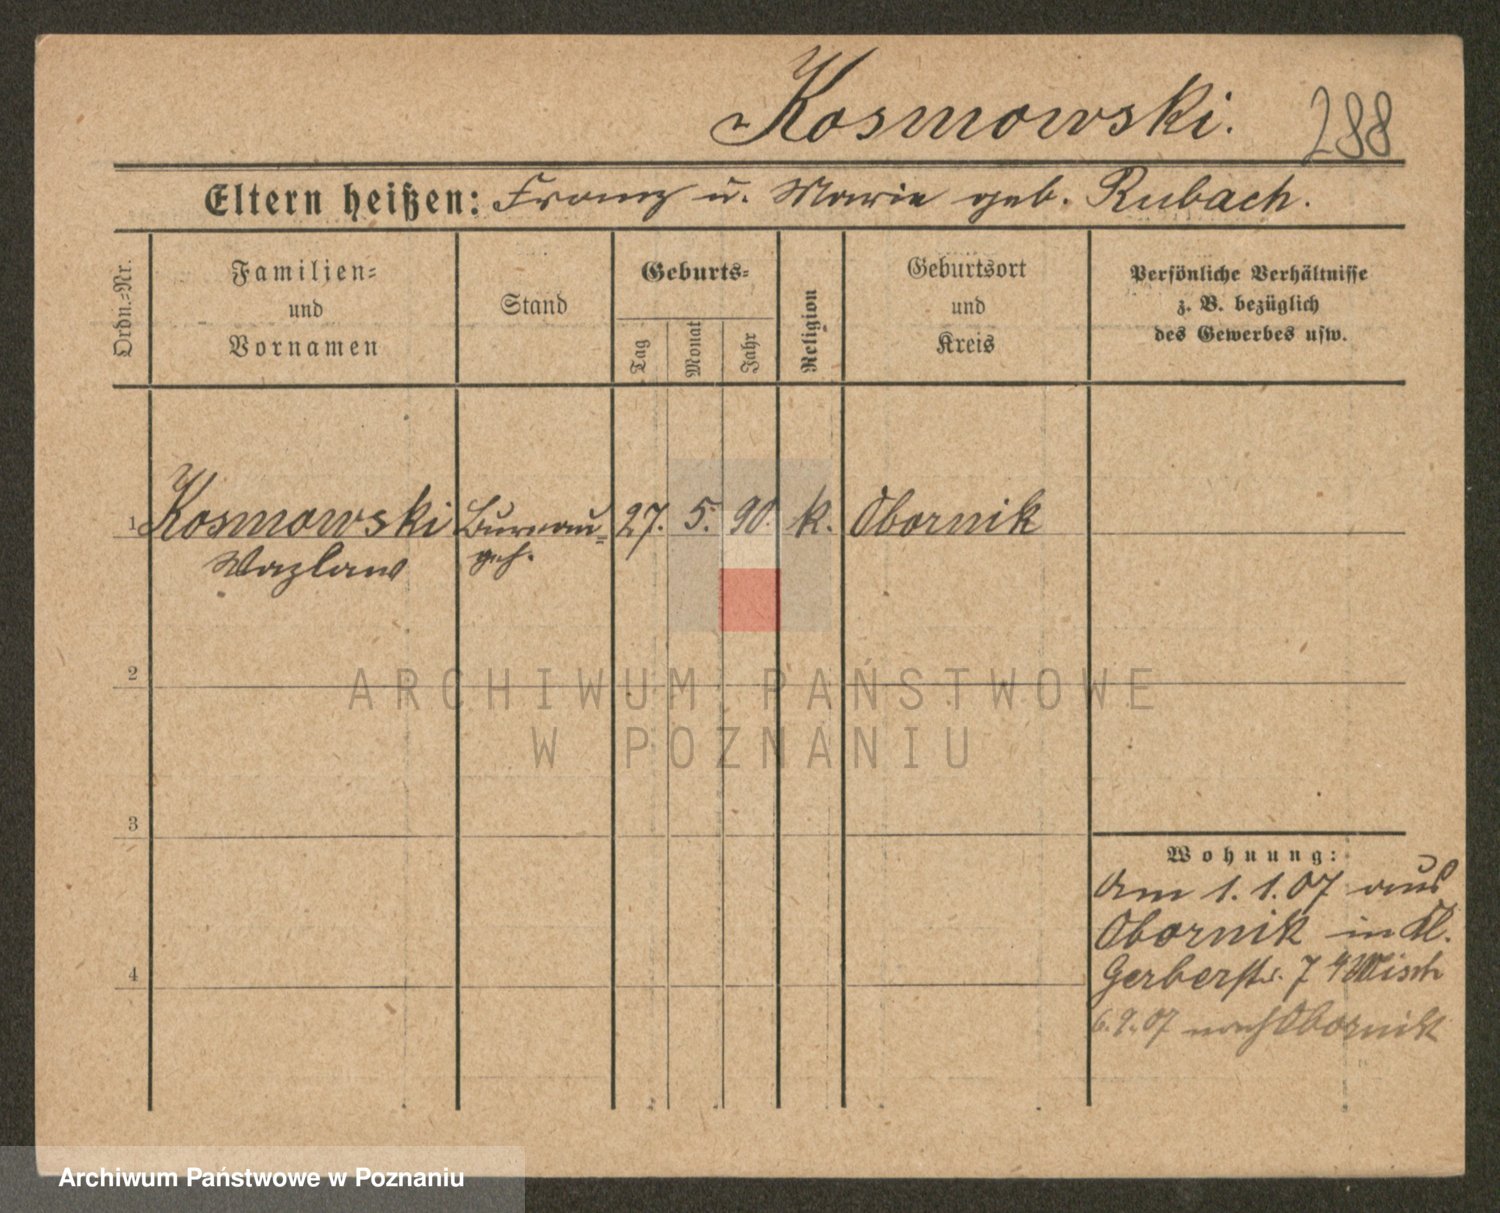 Kosmowski. 288
Eltern heißen: Franz u. Marie geb. Rubach.
Ordn.=Nr.
Familien=
und
Vornamen
Stand
Geburts=
Tag
Monat
Jahr
Religion
Geburtsort
und
Kreis
Persönliche Verhältnisse
z. B. bezüglich
des Gewerbes usw.
1 Kosmowski Bureau= 27. 5. 90. k. Obornik
Wazlaw geh.
2
ARCHIWUM PAŃSTWOWE
W POZNANIU
3
Wohnung:
Am 1. 1. 07 aus
Obornik in Kl.
4 Gerberstr. 7
6. 9. 07 nach Obornik
Archiwum Państwowe w Poznaniu